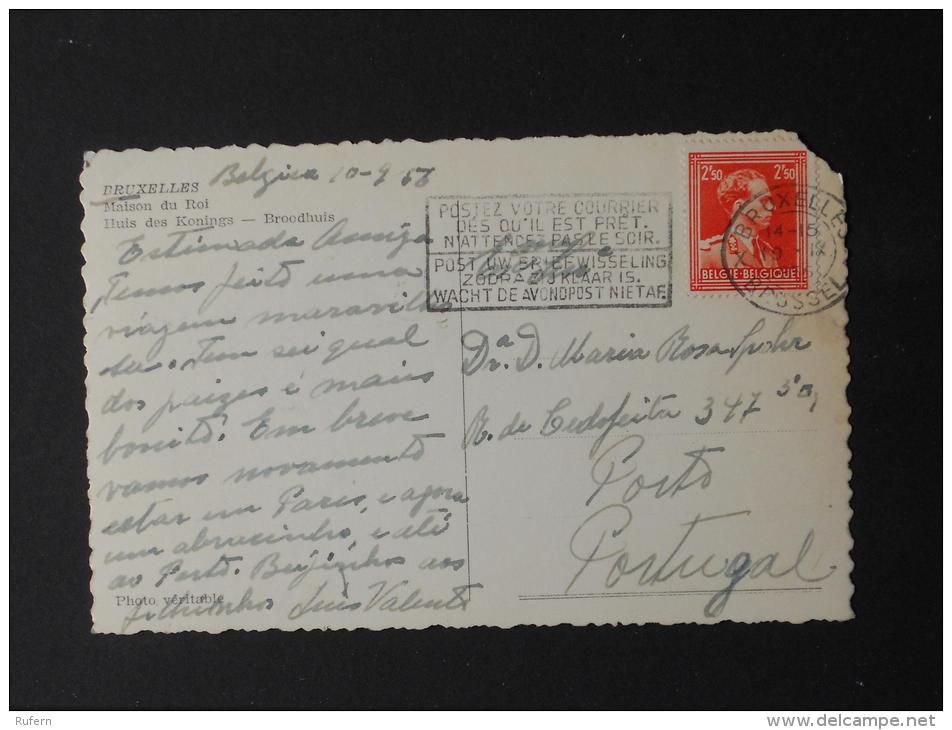 BRUXELLES
Maison du Roi
Huis des Konings — Broodhuis
Belgica 10-9 56
Estimada Amiga
Temos feito uma
viagem maravilho
sa. Nem sei qual
dos paizes é mais
bonito. Em breve
vamos novamente
estar em Paris, e agora
um abracinho, e até
ao Porto. Beijinhos aos
filhinhos Luis Valente
Photo véritable
POSTEZ VOTRE COURRIER
DES QU'IL EST PRÊT.
N'ATTENDEZ PAS LE SOIR.
POST UW BRIEFWISSELING
ZODRA ZIJ KLAAR IS.
WACHT DE AVONDPOST NIET AF.
2F50 2F50
BELGIE-BELGIQUE
BRUXELLES
14-15
BRUSSEL
Dra. D. Maria Rosa Spohr
R. de Cedofeita 347 3º
Porto
Portugal
Rufern
www.delcampe.net